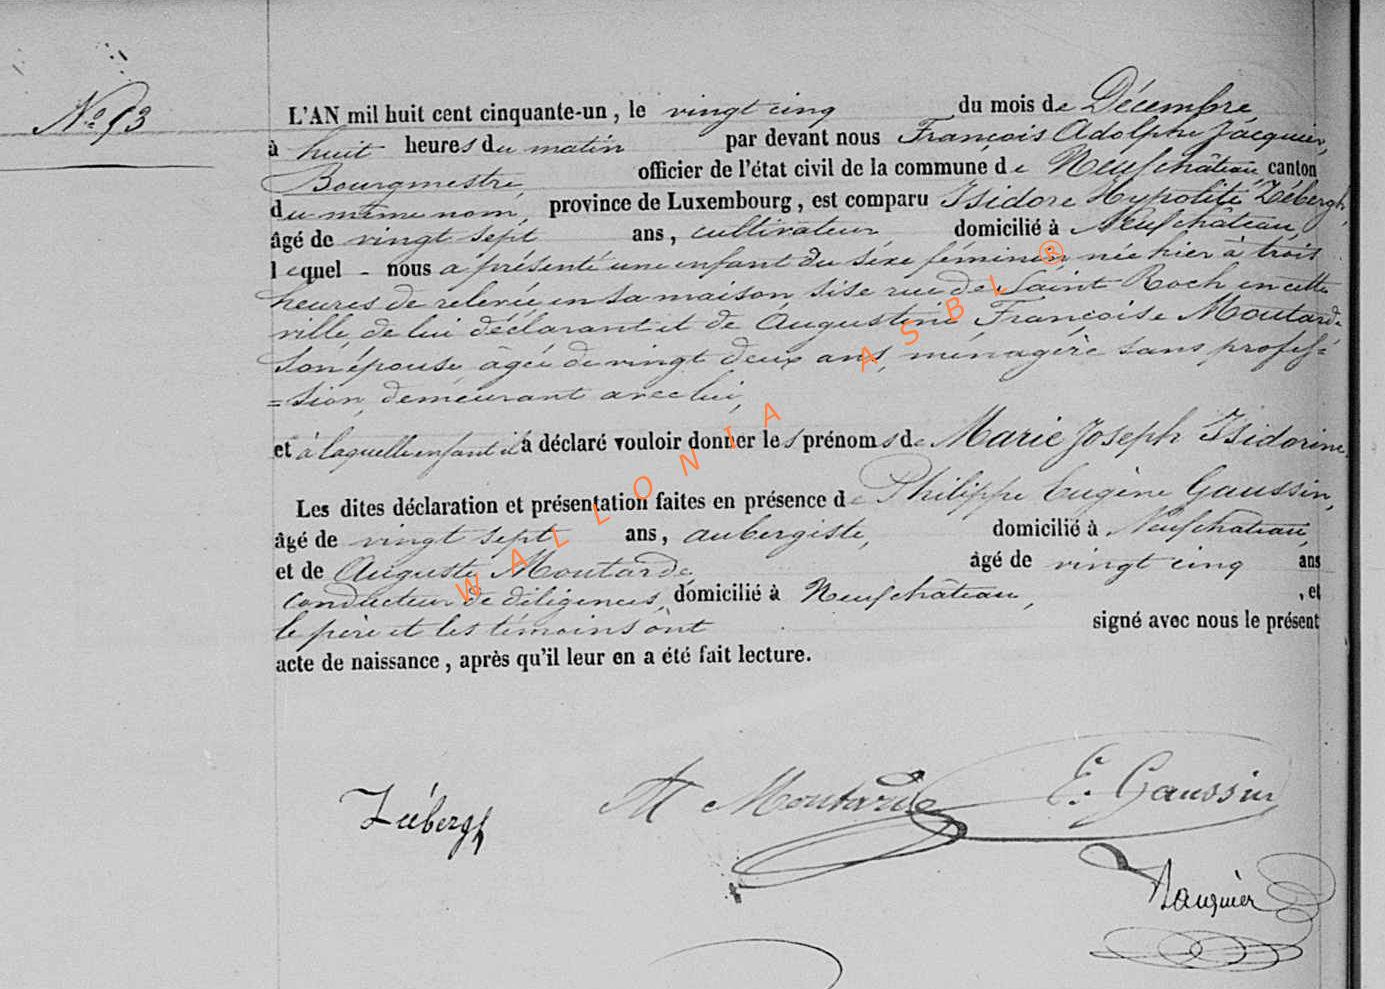 Nº 93
L'AN mil huit cent cinquante-un, le vingt cinq du mois de Décembre
à huit heures du matin par devant nous François Adolphe Jacquier,
Bourgmestre, officier de l'état civil de la commune de Neufchâteau, canton
du même nom, province de Luxembourg, est comparu Isidore Hypolite Zébergh,
âgé de vingt sept ans, cultivateur domicilié à Neufchâteau,
lequel - nous a présenté une enfant du sexe féminin, née hier à trois
heures de relevée en sa maison sise rue de Saint Roch en cette
ville, de lui déclarant et de Augustine Françoise Moutarde
son épouse âgée de vingt deux ans, ménagère sans profes=
=sion, demeurant avec lui,
et à laquelle enfant il a déclaré vouloir donner les prénoms de Marie Joseph Isidorine.
Les dites déclaration et présentation faites en présence de Philippe Eugène Gaussin,
âgé de vingt sept ans, aubergiste, domicilié à Neufchâteau,
et de Auguste Moutarde, âgé de vingt cinq ans
conducteur de diligences, domicilié à Neufchâteau, , et
le père et les témoins ont signé avec nous le présent
acte de naissance, après qu'il leur en a été fait lecture.
Moutarde E. Gaussin
Jacquier
WALLONIA ASBL ®